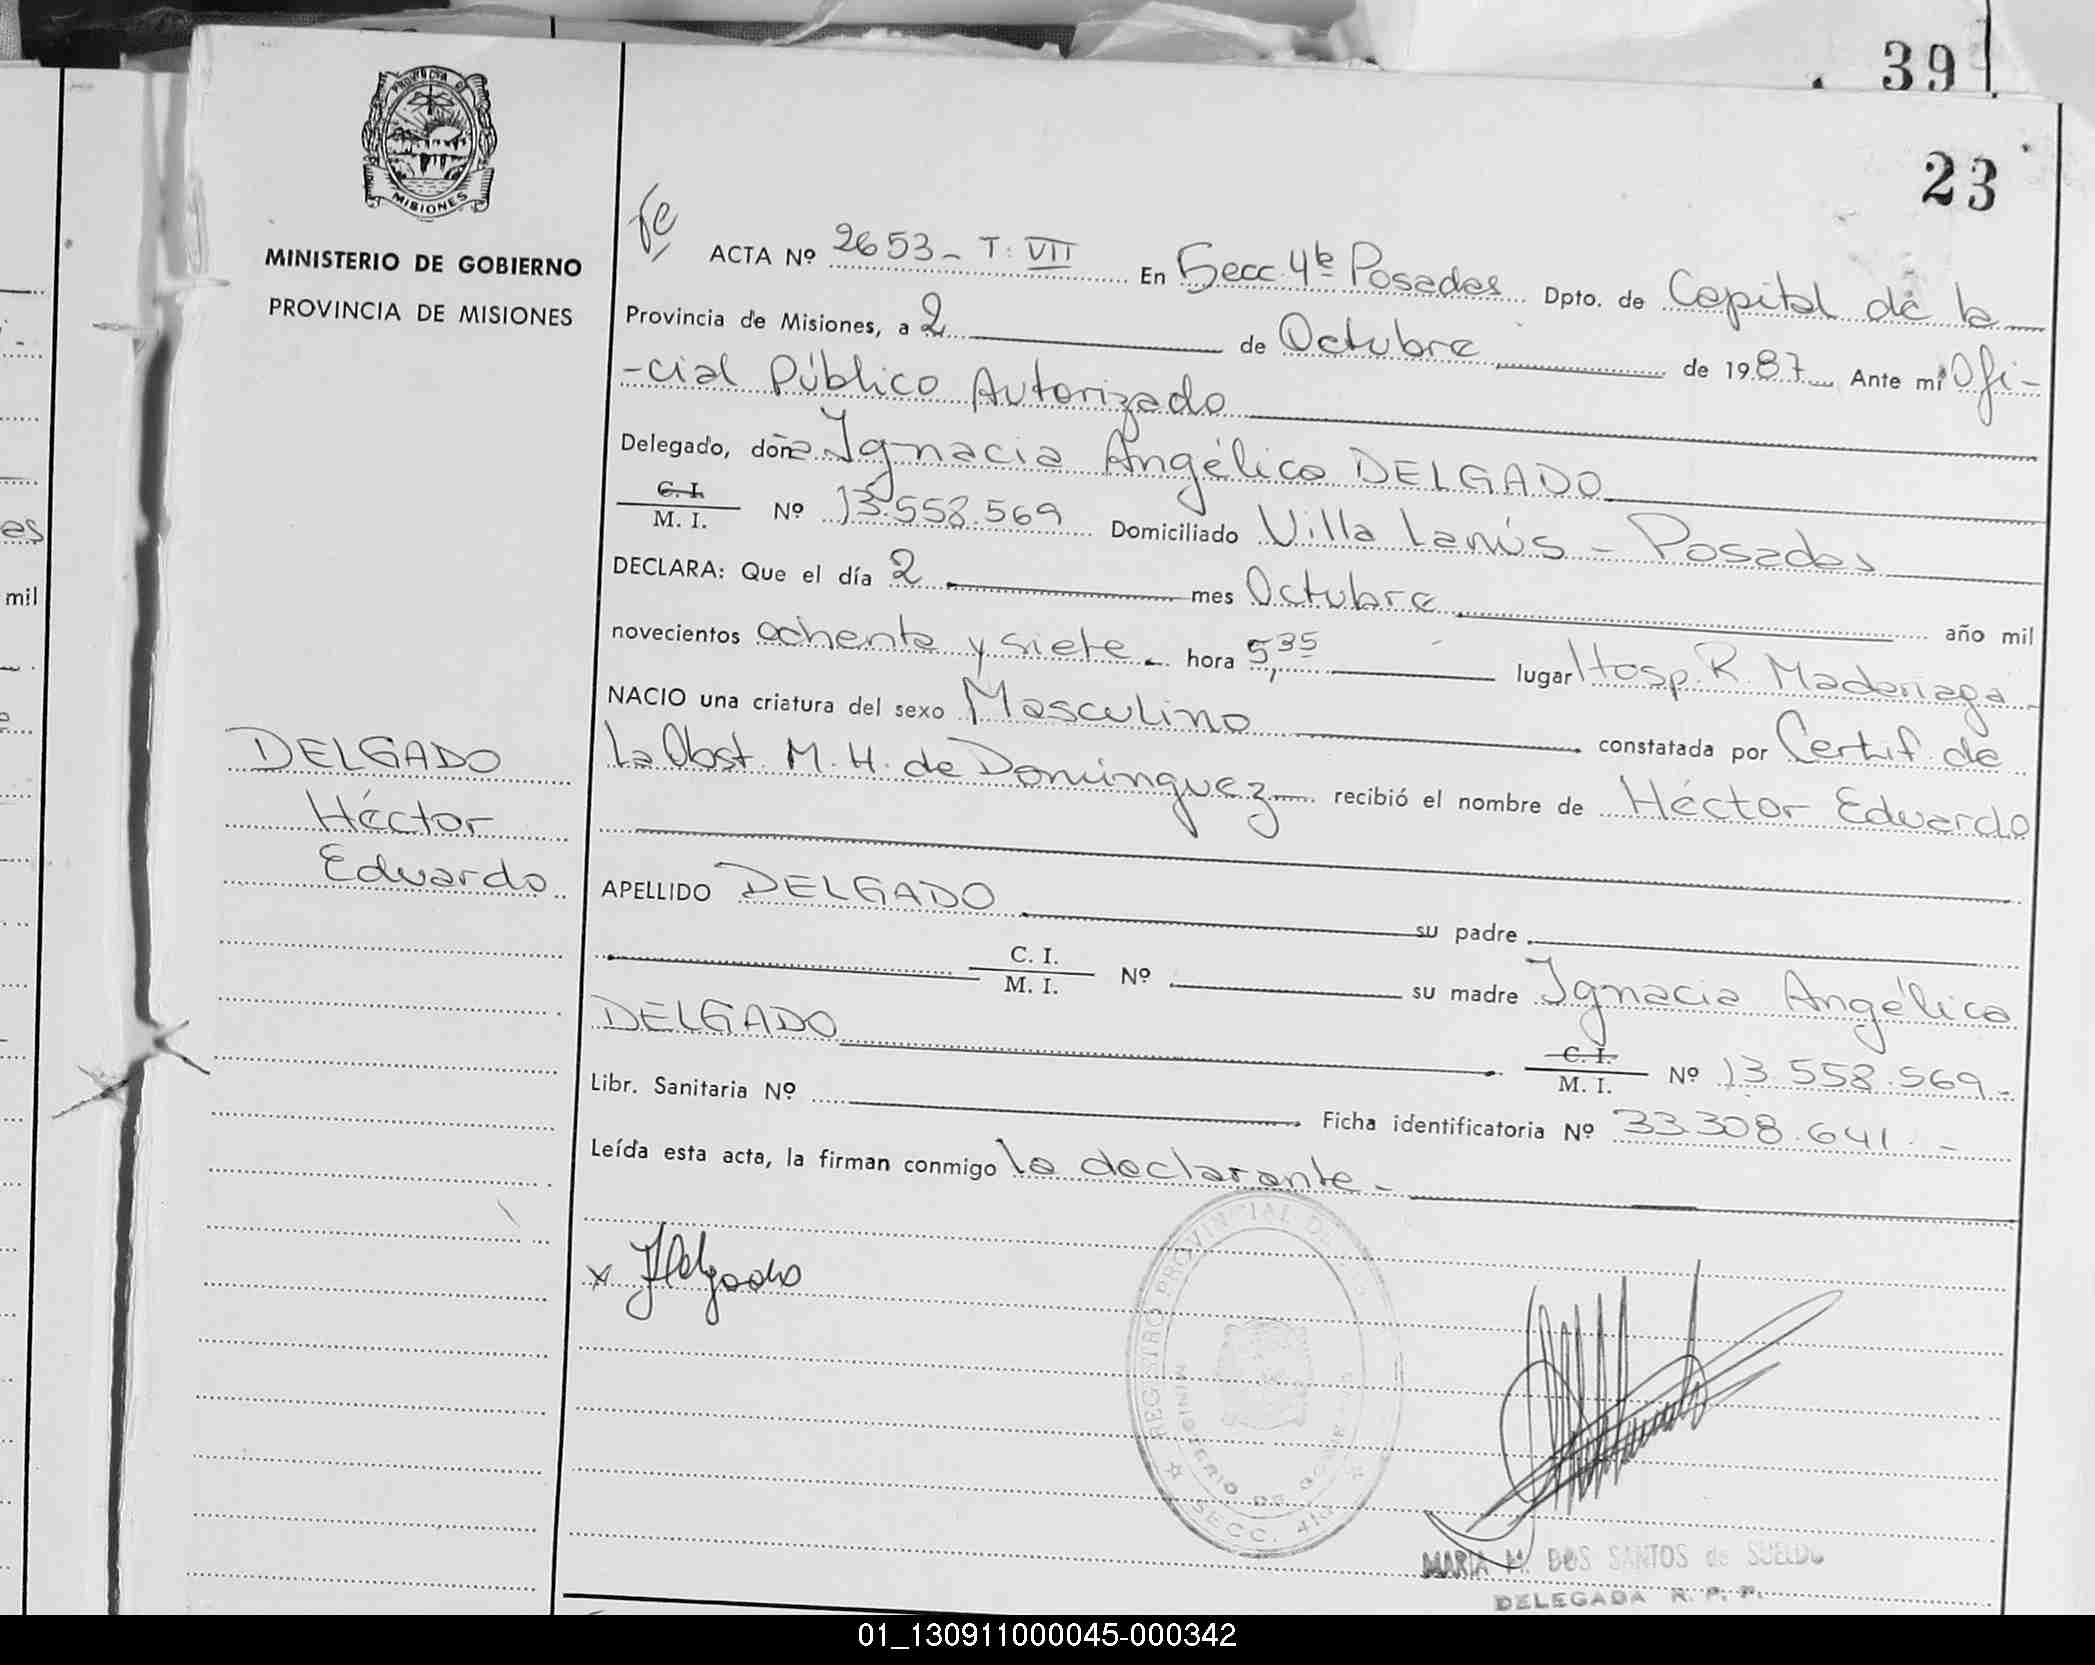 39
23
PROVINCIA DE
MISIONES
MINISTERIO DE GOBIERNO
PROVINCIA DE MISIONES
ACTA Nº 2653 - T: VII En Secc. 4ta Posadas Dpto. de Capital de la
Provincia de Misiones, a 2 de Octubre de 1987 Ante mi Ofi-
-cial Público Autorizado
Delegado, doña Ignacia Angélica DELGADO
C. I.
M. I. Nº 13.558.569 Domiciliado Villa Lanús - Posadas
DECLARA: Que el día 2 mes Octubre año mil
novecientos ochenta y siete. hora 5,35 lugar Hosp. R. Madariaga
NACIO una criatura del sexo Masculino constatada por Certif. de
la Obst. M. H. de Domínguez recibió el nombre de Héctor Eduardo
APELLIDO DELGADO su padre
C. I.
M. I. Nº su madre Ignacia Angélica
DELGADO C. I.
M. I. Nº 13.558.569.-
Libr. Sanitaria Nº Ficha identificatoria Nº 33.308.641.-
Leída esta acta, la firman conmigo la declarante -
DELGADO
Héctor
Eduardo
es
mil
x IDelgado
REGISTRO PROVINCIAL DE
MINISTERIO DE
SECC. 4ta
MARIA M. DOS SANTOS de SUELDO
DELEGADA R. P. P.
01_130911000045-000342